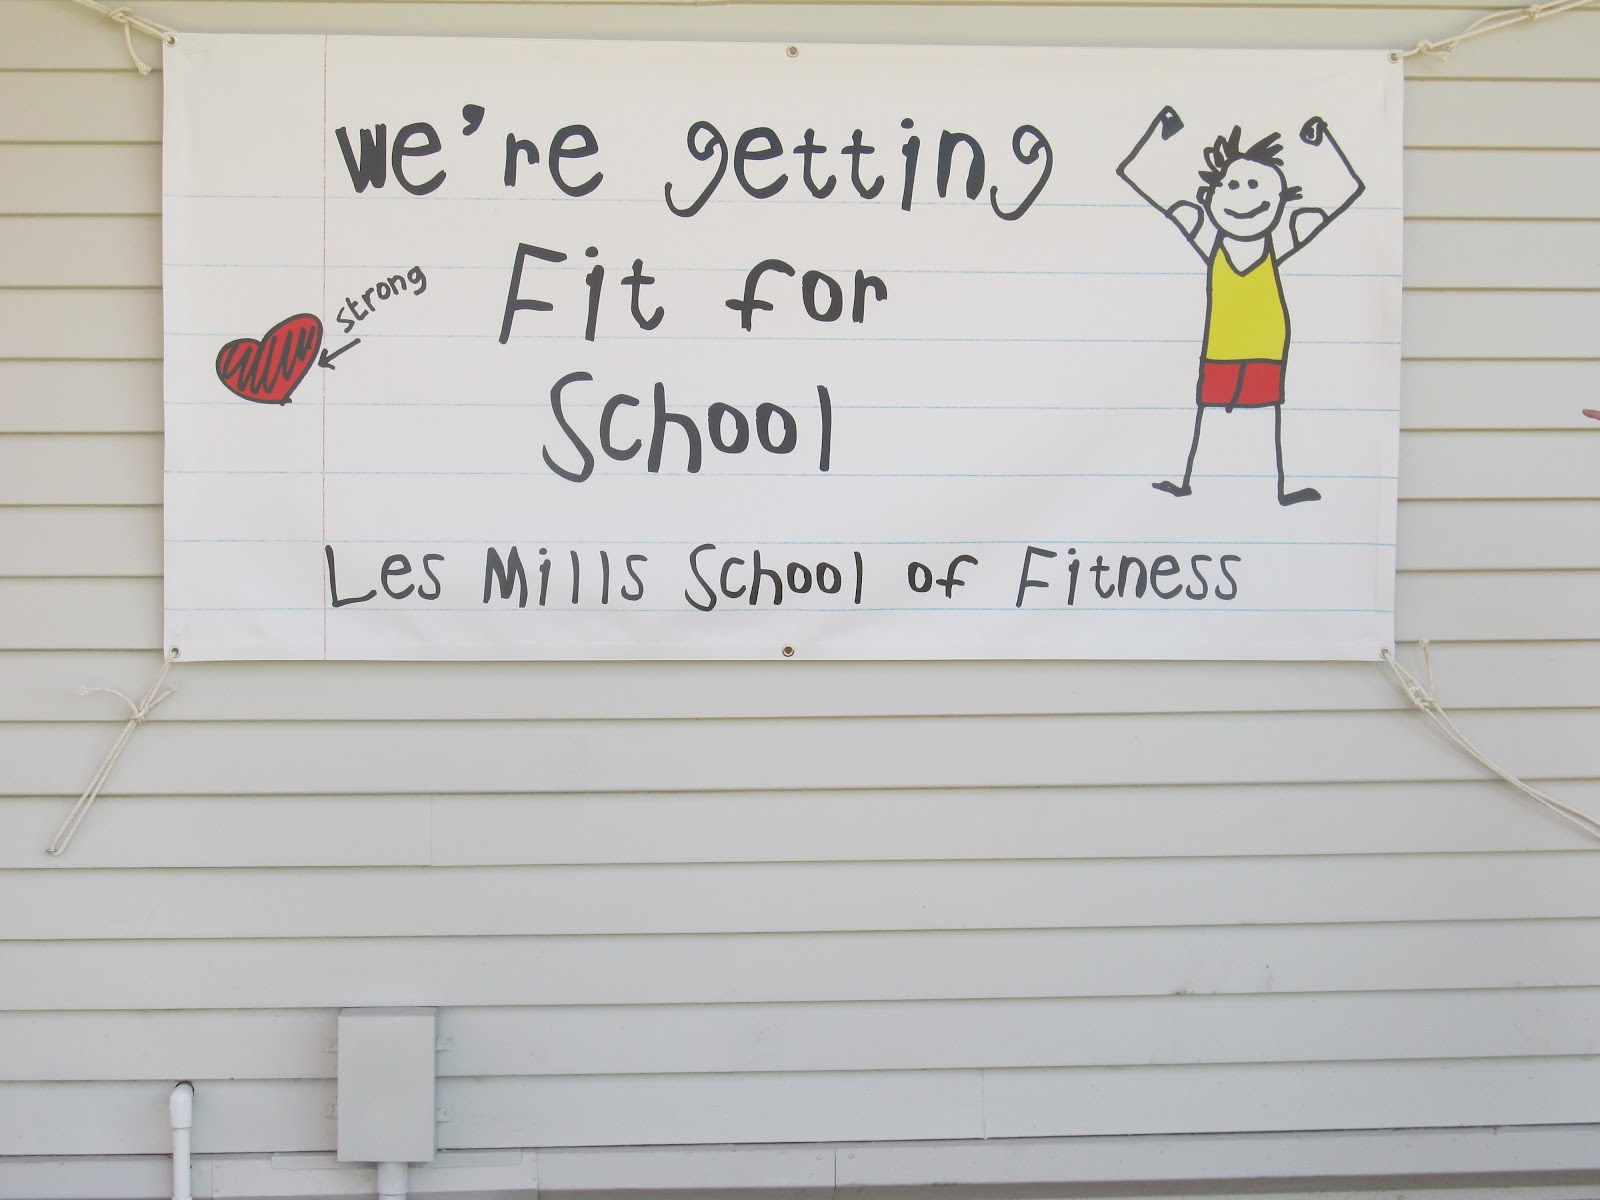 We're getting
Fit for
strong
School
Les Mills School of Fitness